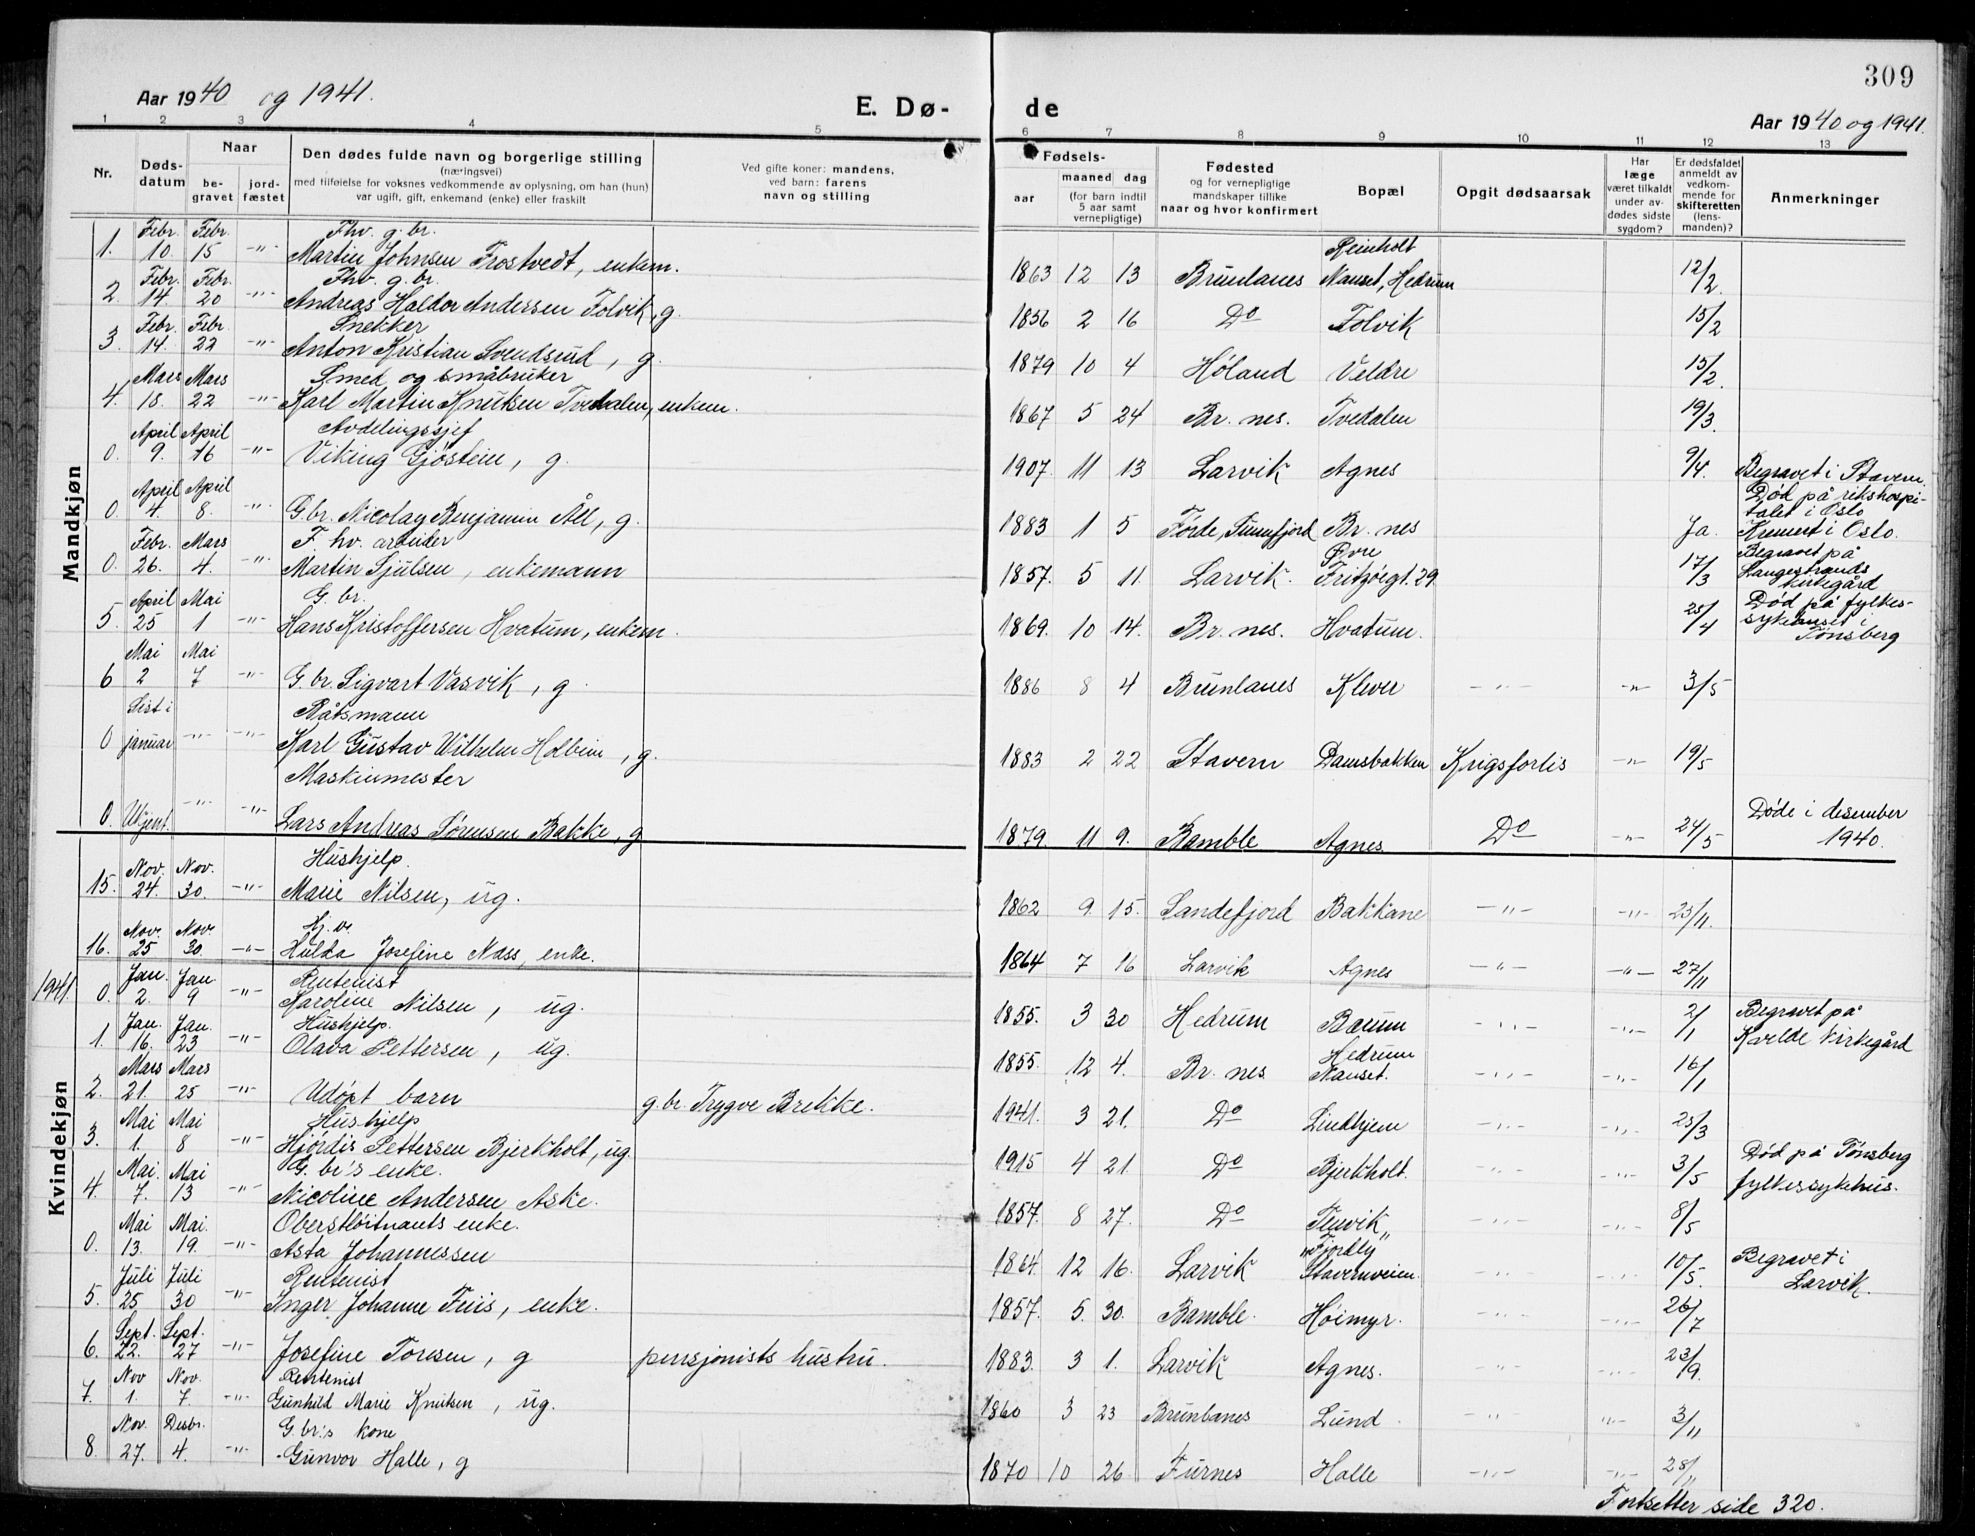 309
Aar 1940 og 1941.
E. Dø-
de
Aar 1940 og 1941.
1 2 3 4 5 6 7 8 9 10 11 12 13
Nr.
Døds-
datum
Naar
be-
gravet
jord-
fæstet
Den dødes fulde navn og borgerlige stilling
(næringsvei)
med tilføielse for voksnes vedkommende av oplysning, om han (hun)
var ugift, gift, enkemand (enke) eller fraskilt
Ved gifte koner: mandens,
ved barn: farens
navn og stilling
Fødsels-
aar
maaned dag
(for barn indtil
5 aar samt
vernepligtige)
Fødested
og for vernepligtige
mandskaper tillike
naar og hvor konfirmert
Bopæl
Opgit dødsaarsak
Har
læge
været tilkaldt
under av-
dødes sidste
sygdom?
Er dødsfaldet
anmeldt av
vedkom-
mende for
skifteretten
(lens-
manden)?
Anmerkninger
Mandkjøn
Febr. Febr. Fhv. g.br. Reinholt
1. 10. 15 -"- Martin Johnsen Frostvedt, enkem. 1863 12 13 Brunlanes Nanset, Hedrum 12/2.
Febr. Febr. Fhv. g.br.
2. 14. 20 -"- Andreas Haldor Andersen Tolvik, g. 1856 2 16 Do Tolvik 15/2
Febr. Febr. Snekker
3. 14. 22 -"- Anton Kristian Svendsrud, g. 1879 10 4 Høland Veldre 15/2.
Mars Mars Smed og småbruker
4. 18. 22 -"- Karl Martin Knutsen Tvedalen, enkem. 1867 5 24 Br. nes. Tvedalen 19/3.
April April Avdelingssjef
0. 9. 16 -"- Viking Gjøstein, g. 1907. 11 13 Larvik Agnes 9/4. Begravet i Stavern.
April April
0. 4. 8. -"- G.br. Nicolay Benjamin Åll, g. 1883 1 5 Førde, Sunnfjord Br. nes Ja. Død på rikshospi-
talet i Oslo
Kremert i Oslo.
Febr. Mars F. hv. arbeider Øvre
0. 26. 4. -"- Martin Sjulsen, enkemann 1857. 5 11. Larvik. Fritzøegt. 29. 17/3 Begravet på
Langestrands
kirkegård
April Mai G. br.
5. 25 1 -"- Hans Kristoffersen Hvatum, enkem. 1869. 10 14. Br. nes. Hvatum. 25/4 Død på fylkes-
sykehuset i
Tønsberg
Mai Mai
6 2 7 -"- G. br. Sigvart Vasvik, g. 1886 8 4 Brunlanes Klever -"- -"- 3/5
Sist i Båtsmann
0 januar -"- -"- Karl Gustav Wilhelm Holbein, g. 1883 2 22 Stavern Damsbakken Krigsforlis -"- 19/5
Maskinmester
0. Ukjent. -"- -"- Lars Andreas Sørensen Bakke, g 1879 11 9. Bamble Agnes Do -"- 24/5 Døde i desember
1940.
Kvindekjøn
Nov. Nov. Hushjelp.
15. 24. 30. -"- Marie Nilsen, ug. 1862 9. 15. Sandefjord Bakkane -"- -"- 25/11.
Nov. Nov. Hj. v.
16. 25 30. -"- Hulda Josefine Næss, enke. 1864 7 16 Larvik Agnes -"- -"- 27/11
Jan. Jan Rentenist
1941. 0. 2. 9 -"- Karoline Nilsen, ug. 1855. 3 30 Hedrum Bærum -"- -"- 2/1 Begravet på
Kvelde kirkegård
Jan. Jan. Hushjelp.
1. 16. 23 -"- Olava Pettersen, ug. 1855. 12 4. Br. nes Hedrum
Nanset. -"- -"- 16/1
Mars Mars
2. 21. 25 -"- Udøpt barn g.br. Trygve Brekke. 1941. 3 21. Do Lindhjem -"- -"- 25/3
Mai Mai Hushjelp
3. 1. 8 -"- Hjørdis Pettersen Bjerkholt, ug. 1915 4 21. Do Bjerkholt. -"- -"- 3/5 Død på Tønsberg
fylkessykehus.
Mai. Mai G. br's enke.
4. 7. 13 -"- Nicoline Andersen Aske. 1857. 8 27. Do Tenvik -"- -"- 8/5
Mai Mai. Oberstløitnants enke.
0. 13. 19. -"- Asta Johannessen 1864. 12 16. Larvik "Fjordly"
Stavernveien. -"- -"- 10/5. Begravet i
Larvik.
Juli Juli Rentenist
5. 25 30 -"- Inger Johanne Friis, enke. 1857. 5. 30. Bamble. Høimyr. -"- -"- 26/7
Sept. Sept.
6. 22. 27 -"- Josefine Toresen, g pensjonists hustru. 1883. 3 1. Larvik Agnes. -"- -"- 23/9.
Nov Nov. Rentenist
7. 1. 7 -"- Gunhild Marie Knutsen, ug. 1860 3 23 Brunlanes Lund -"- -"- 3/11
Nov. Desbr. G. br.'s kone
8. 27. 4. -"- Gunvor Halle, g 1870 10 26 Furnes Halle -"- -"- 28/11
Fortsetter side 320.